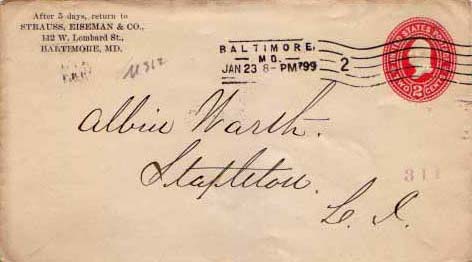 After 5 days, return to
STRAUSS, EISEMAN & CO.,
142 W. Lombard St.,
BALTIMORE, MD.
BALTIMORE,
MD.
JAN 23 8-PM '99
2
UNITED STATES POSTAGE
TWO 2 CENTS
Albin Warth.
Stapleton.
L. I.
311